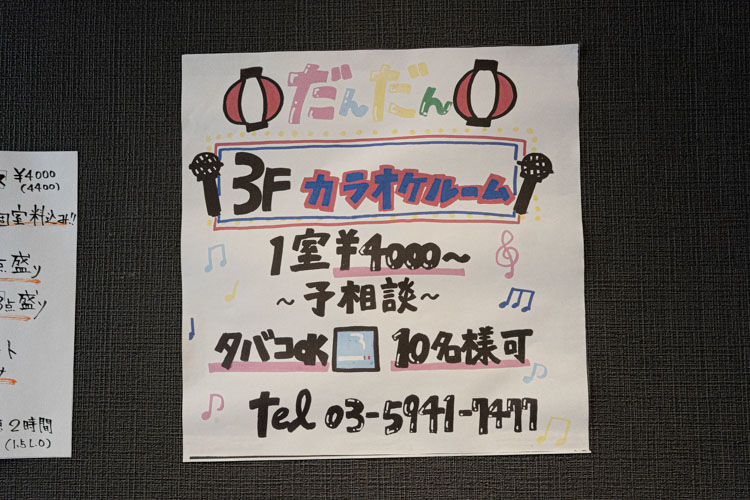 だんだん
3F カラオケルーム
1室¥4000〜
〜予相談〜
タバコok 10名様可
tel 03-5941-7477
¥4000
(4400)
室料込み!!
点盛り
3点盛り
ト
2時間
(1.5L.O)